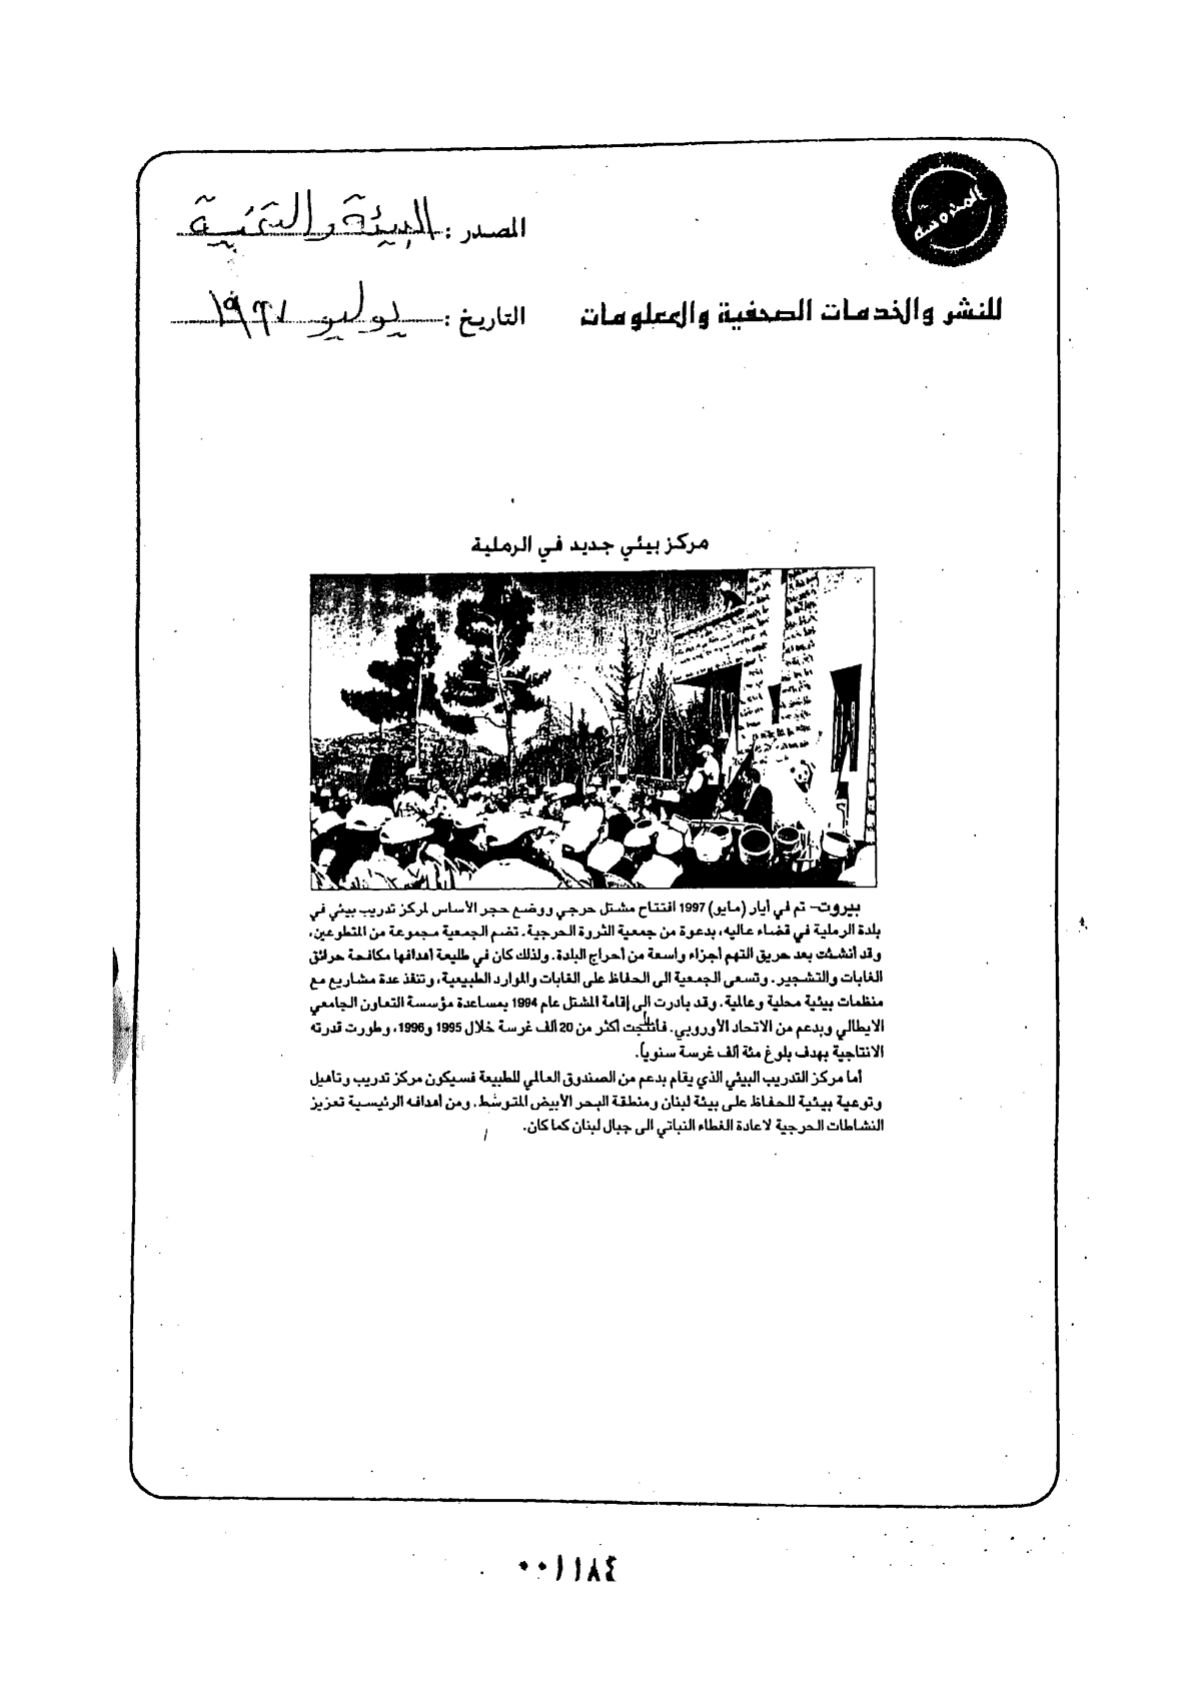 المحروسة
المصدر : البيئة والتنمية
للنشر والخدمات الصحفية والمعلومات
التاريخ : يوليو ١٩٩٧
مركز بيئي جديد في الرملية
بيروت– تم في أيار (مايو) 1997 افتتاح مشتل حرجي ووضع حجر الأساس لمركز تدريب بيئي في
بلدة الرملية في قضاء عاليه، بدعوة من جمعية الثروة الحرجية. تضم الجمعية مجموعة من المتطوعين،
وقد أنشئت بعد حريق التهم أجزاء واسعة من أحراج البلدة. ولذلك كان في طليعة أهدافها مكافحة حرائق
الغابات والتشجير. وتسعى الجمعية الى الحفاظ على الغابات والموارد الطبيعية، وتنفذ عدة مشاريع مع
منظمات بيئية محلية وعالمية. وقد بادرت إلى إقامة المشتل عام 1994 بمساعدة مؤسسة التعاون الجامعي
الايطالي وبدعم من الاتحاد الأوروبي. فانتجت أكثر من 20 ألف غرسة خلال 1995 و1996، وطورت قدرته
الانتاجية بهدف بلوغ مئة ألف غرسة سنوياً.
أما مركز التدريب البيئي الذي يقام بدعم من الصندوق العالمي للطبيعة فسيكون مركز تدريب وتأهيل
وتوعية بيئية للحفاظ على بيئة لبنان ومنطقة البحر الأبيض المتوسط. ومن أهدافه الرئيسية تعزيز
النشاطات الحرجية لاعادة الغطاء النباتي الى جبال لبنان كما كان.
٠٠١١٨٤